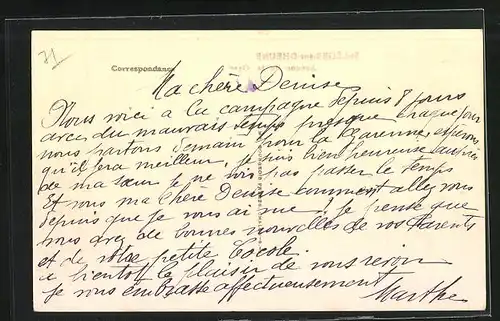 71
Correspondance
Ma chère Denise
Nous voici à la campagne depuis 8 jours
avec du mauvais temps presque chaque jour
nous partons demain pour la Garenne, espérons
qu'il sera meilleur, je suis bien heureuse auprès
de ma sœur je ne vois pas passer le temps
Et vous ma chère Denise comment allez vous
depuis que je vous ai vue ! je pense que
vous avez de bonnes nouvelles de vos Parents
et de votre petite Cocole.
à bientôt le plaisir de vous revoir
je vous embrasse affectueusement
Marthe